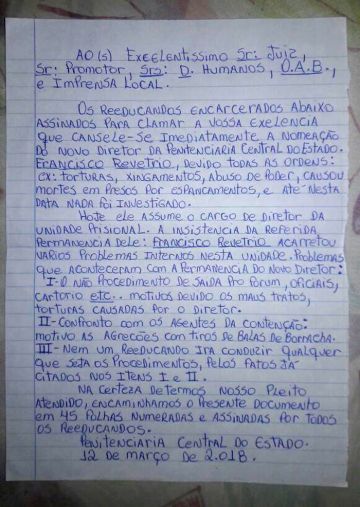 AO(S) EXCELENTISSIMO Sr: JUIZ,
Sr: PROMOTOR, Srs: D. HUMANOS, O.A.B.,
E IMPRENSA LOCAL.
OS REEDUCANDOS ENCARCERADOS ABAIXO
ASSINADOS PARA CLAMAR A VOSSA EXELENCIA
QUE CANSELE-SE IMEDIATAMENTE A NOMEAÇÃO
DO NOVO DIRETOR DA PENITENCIARIA CENTRAL DO ESTADO.
FRANCISCO REVETRIO, DEVIDO TODAS AS ORDENS:
EX: TORTURAS, XINGAMENTOS, ABUSO DE PODER, CAUSOU
MORTES EM PRESOS POR ESPANCAMENTOS, E ATÉ NESTA
DATA NADA FOI INVESTIGADO.
HOJE ELE ASSUME O CARGO DE DIRETOR DA
UNIDADE PRISIONAL. A INSISTENCIA DA REFERIDA
PERMANENCIA DELE: FRANCISCO REVETRIO ACARRETOU
VARIOS PROBLEMAS INTERNOS NESTA UNIDADE. PROBLEMAS
QUE ACONTECERAM COM A PERMANENCIA DO NOVO DIRETOR:
I-O NÃO PROCEDIMENTO DE SAIDA PRO FORUM, OFICIAIS,
CARTORIO etc.. MOTIVOS DEVIDO OS MAUS TRATOS,
TORTURAS CAUSADAS POR O DIRETOR.
II-CONFRONTO COM OS AGENTES DA CONTENÇÃO:
MOTIVO AS AGRECÕES COM TIROS DE BALAS DE BORRACHA.
III-NEM UM REEDUCANDO IRA CONDUZIR QUALQUER
QUE SEJA OS PROCEDIMENTOS, PELOS FATOS JÁ
CITADOS NOS ITENS I E II.
NA CERTEZA DE TERMOS NOSSO PLEITO
ATENDIDO, ENCAMINHAMOS O PRESENTE DOCUMENTO
EM 45 FOLHAS NUMERADAS E ASSINADAS POR TODOS
OS REEDUCANDOS.
PENITENCIARIA CENTRAL DO ESTADO.
12 DE MARÇO DE 2.018.